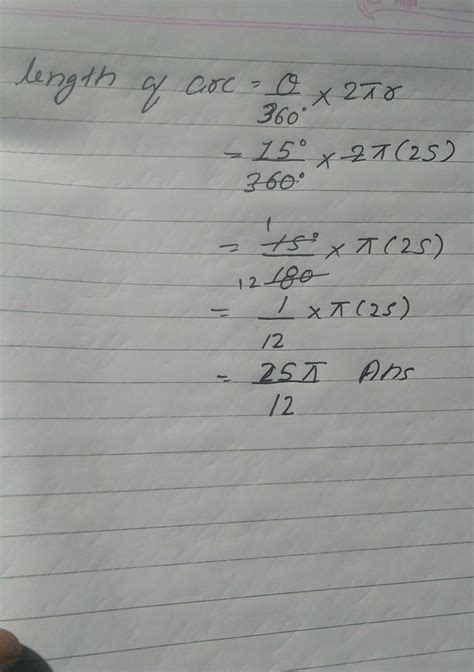 length of arc = θ/360° × 2πr
= 15°/360° × 2π(25)
= 1 15°/12 180 × π(25)
= 1/12 × π(25)
= 25π/12 Ans